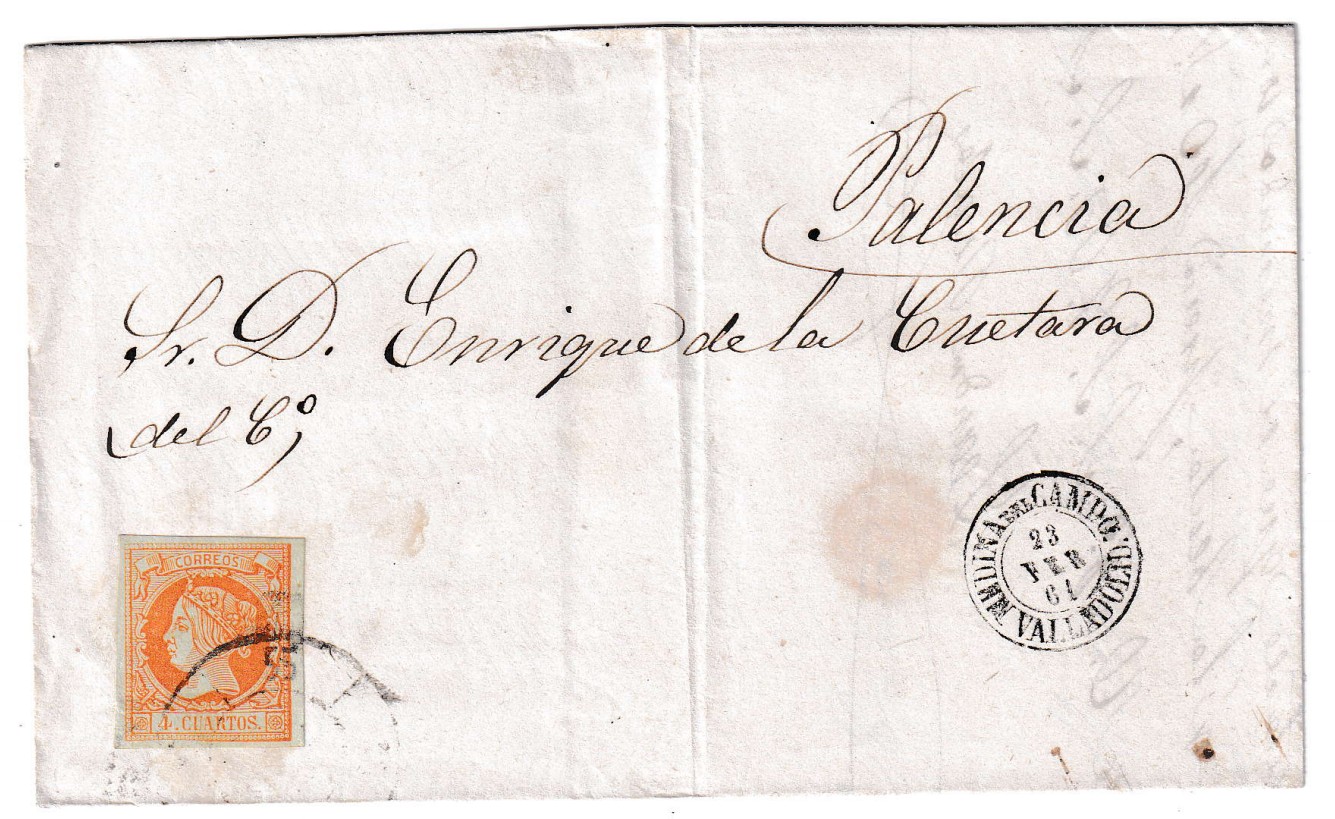 Palencia
Sr. D. Enrique de la Cuetara
del Cº,
CORREOS
4. CUARTOS.
MEDINA DEL CAMPO.
23
FEB
61
VALLADOLID.